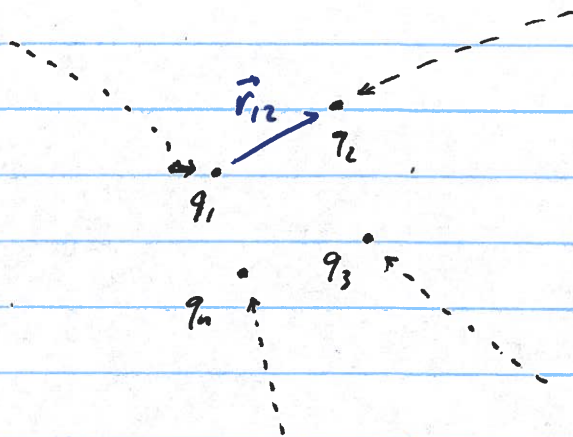 r⃗₁₂
q₂
q₁
q₃
qₙ